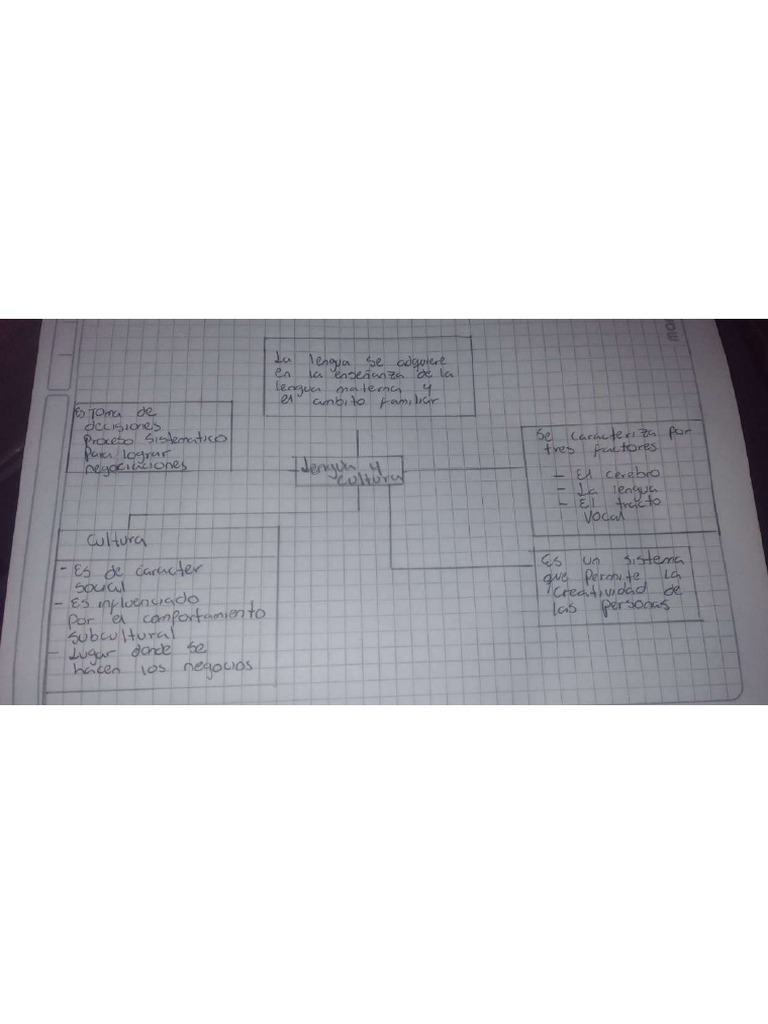 La lengua se adquiere
en la enseñanza de la
lengua materna y
el ambito familiar
Es Toma de
decisiones
Proceso sistematico
Para lograr
negociaciones
Se caracteriza por
tres factores
- El cerebro
- La lengua
- El tracto
vocal
Lengua y
cultura
Cultura
- Es de caracter
social
- Es influenciado
por el comportamiento
subcultural
- Lugar donde se
hacen los negocios
Es un sistema
que Permite La
creatividad de
las personas